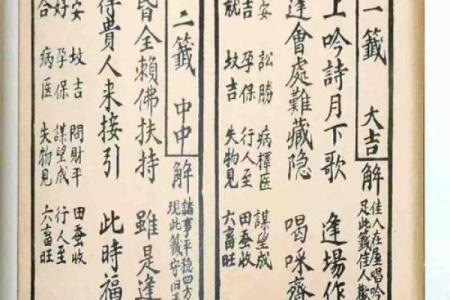 一籤 大吉 解 佳人在屋唱吟
足此籤佳人歡
上吟詩月下歌 逢場作
逢會處難藏隐 喝咪齊
安 訟勝 病擇医 謀望成
孕保 行人至 田蚕收
就 坟吉 失物見 六畜旺
二籤 中中 解 諸事平稳四方
現此籤守旧
昏全賴佛扶持 雖是逢
得貴人来接引 此時福
安 坟吉 問財平 田蚕收
好 孕保 謀望成 行人至
合 病医 失物見 六畜旺